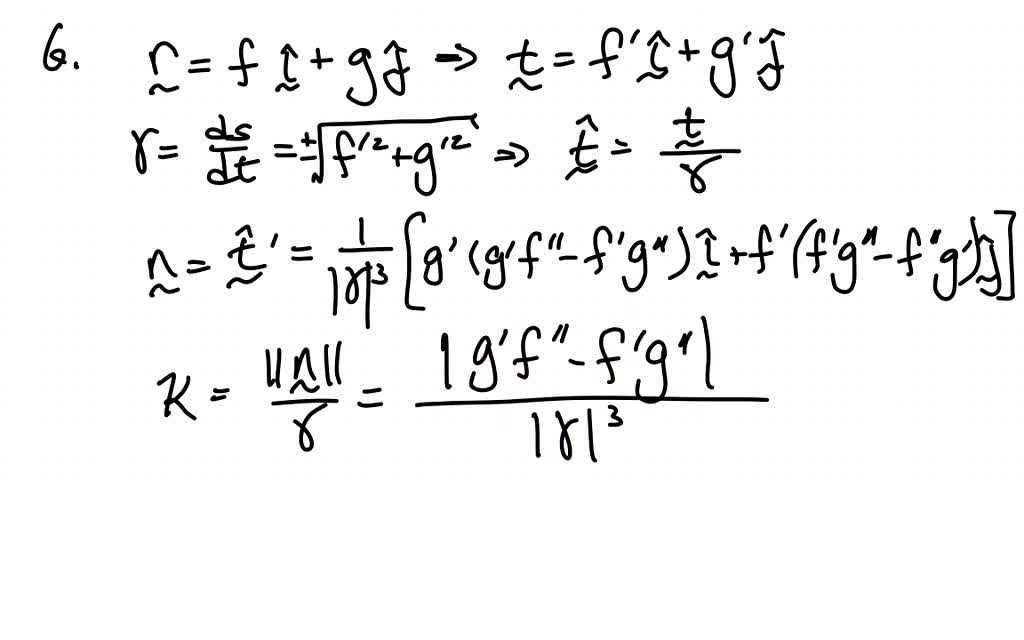 6. r̰ = f î + g ĵ ⇒ t̰ = f' î + g' ĵ
γ = ds/dt = ±√(f'² + g'²) ⇒ t̰̂ = t̰/γ
n̰ = t̰̂' = 1/|γ|³ [g'(g'f'' - f'g'') î + f'(f'g'' - f''g') ĵ]
κ = ||n̰||/γ = |g'f'' - f'g''|/|γ|³